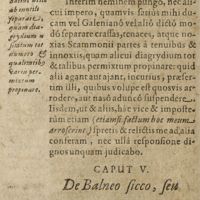 ab inutili
separare,
quam dia-
grydium in
stitutum to-
numero &
qualitatibus
permixtum
propinare.
Interim neminem pungo, nec ali-
cui impero, quamvis satius mihi du-
cam vel Galeniano velalio dictò mo-
dò separare crassas, tenaces, atque no-
xias Scammonii partes à tenuibus &
innoxiis, quam alicui diagrydium tot
& talibus permixtum propinare: quid
magis alii agant, ajant, jocurius, præser-
tim alii, quibus vel auditi vel oculi do-
luerint, aut nasò aduncò suspendere.
Iisdem, ut & aliis, hac vice & imposte-
rum etiam (etiamsi factum hoc meum
arroserint,) spretis & relictis me ad alia
conferam, nec ullâ responsione di-
gnos unquam judicabo.
CAPUT V.
De Balneo sicco, seu